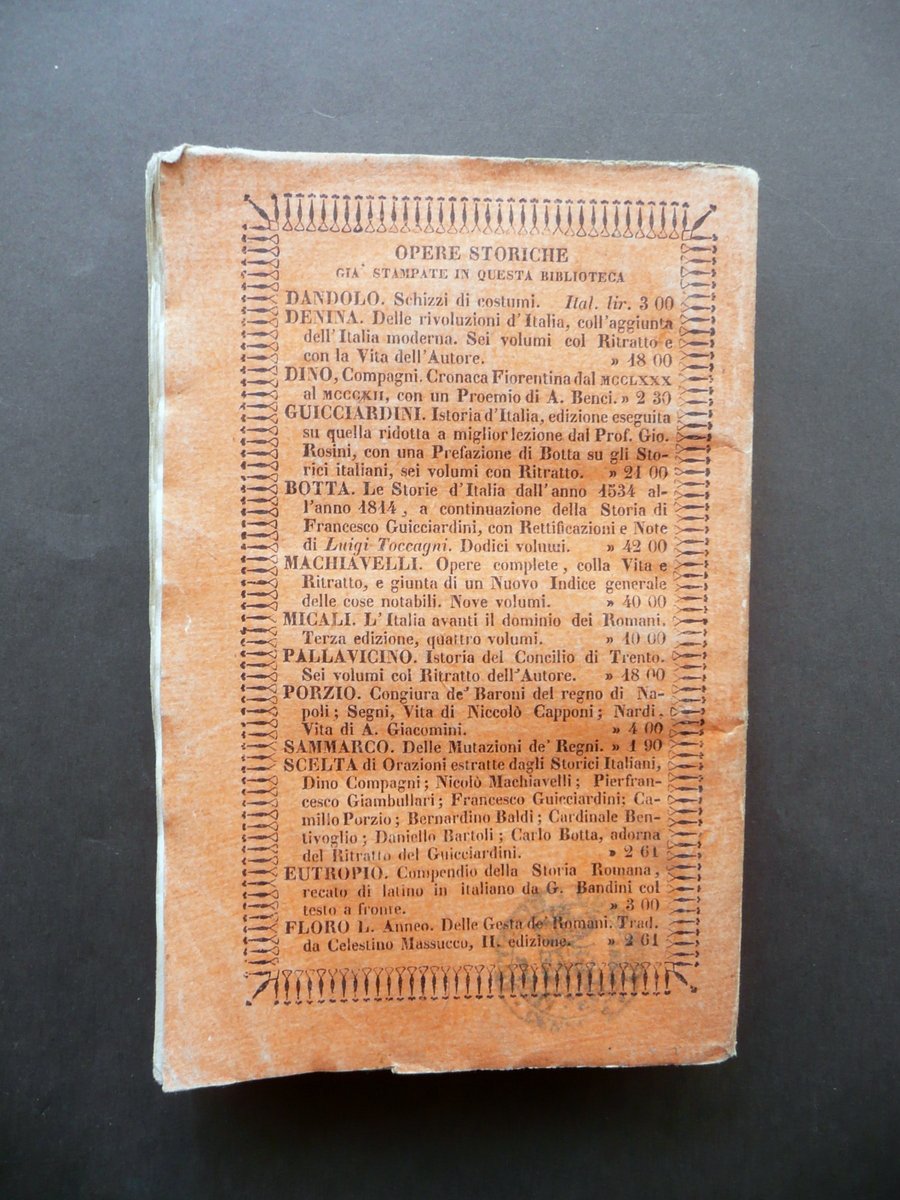 OPERE STORICHE
GIA' STAMPATE IN QUESTA BIBLIOTECA
DANDOLO. Schizzi di costumi. Ital. lir. 3 00
DENINA. Delle rivoluzioni d'Italia, coll'aggiunta
dell'Italia moderna. Sei volumi col Ritratto e
con la Vita dell'Autore. » 18 00
DINO, Compagni. Cronaca Fiorentina dal MCCLXXX
al MCCCXII, con un Proemio di A. Benci. » 2 30
GUICCIARDINI. Istoria d'Italia, edizione eseguita
su quella ridotta a miglior lezione dal Prof. Gio.
Rosini, con una Prefazione di Botta su gli Sto-
rici italiani, sei volumi con Ritratto. » 21 00
BOTTA. Le Storie d'Italia dall'anno 1534 al-
l'anno 1814, a continuazione della Storia di
Francesco Guicciardini, con Rettificazioni e Note
di Luigi Toccagni. Dodici volumi. » 42 00
MACHIAVELLI. Opere complete, colla Vita e
Ritratto, e giunta di un Nuovo Indice generale
delle cose notabili. Nove volumi. » 40 00
MICALI. L'Italia avanti il dominio dei Romani.
Terza edizione, quattro volumi. » 10 00
PALLAVICINO. Istoria del Concilio di Trento.
Sei volumi col Ritratto dell'Autore. » 18 00
PORZIO. Congiura de' Baroni del regno di Na-
poli; Segni, Vita di Niccolò Capponi; Nardi.
Vita di A. Giacomini. » 4 00
SAMMARCO. Delle Mutazioni de' Regni. » 1 90
SCELTA di Orazioni estratte dagli Storici Italiani,
Dino Compagni; Nicolò Machiavelli; Pierfran-
cesco Giambullari; Francesco Guicciardini; Ca-
millo Porzio; Bernardino Baldi; Cardinale Ben-
tivoglio; Daniello Bartoli; Carlo Botta, adorna
del Ritratto del Guicciardini. » 2 61
EUTROPIO. Compendio della Storia Romana,
recato di latino in italiano da G. Bandini col
testo a fronte. » 3 00
FLORO L. Anneo. Delle Gesta de' Romani. Trad.
da Celestino Massucco, II. edizione. » 2 61